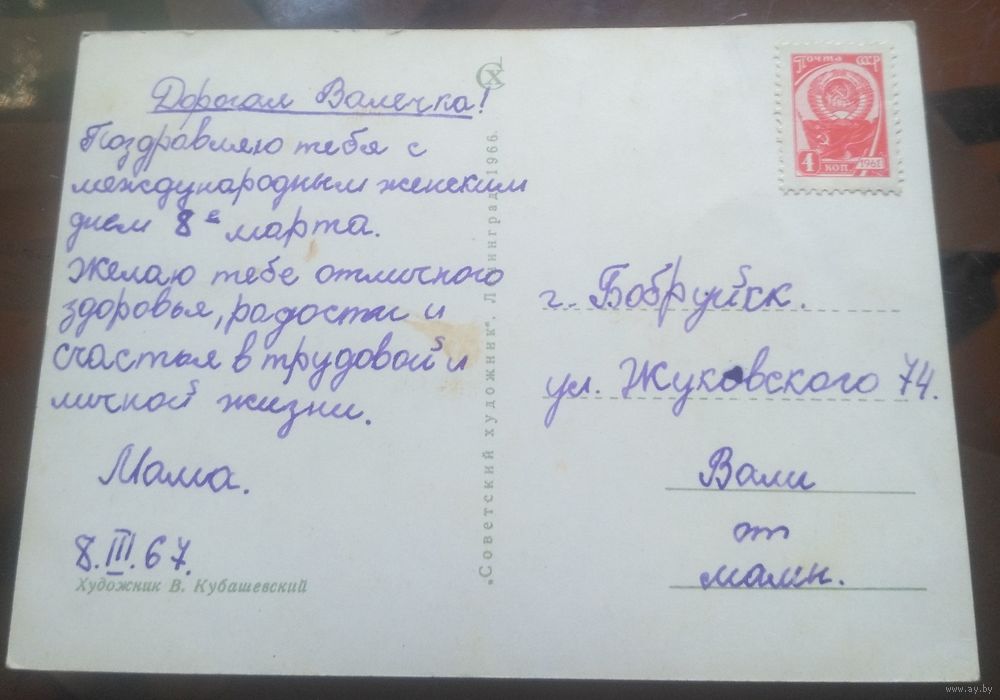 Дорогая Валечка!
Поздравляю тебя с
международным женским
днем 8е марта.
Желаю тебе отличного
здоровья, радости и
счастья в трудовой и
личной жизни.
Мама.
8.III.67.
Художник В. Кубашевский
СХ
„Советский художник“. Ленинград. 1966.
Почта СССР
4 коп. 1961
г. Бобруйск.
ул. Жуковского 74.
Вали
от
мамы.
www.ay.by